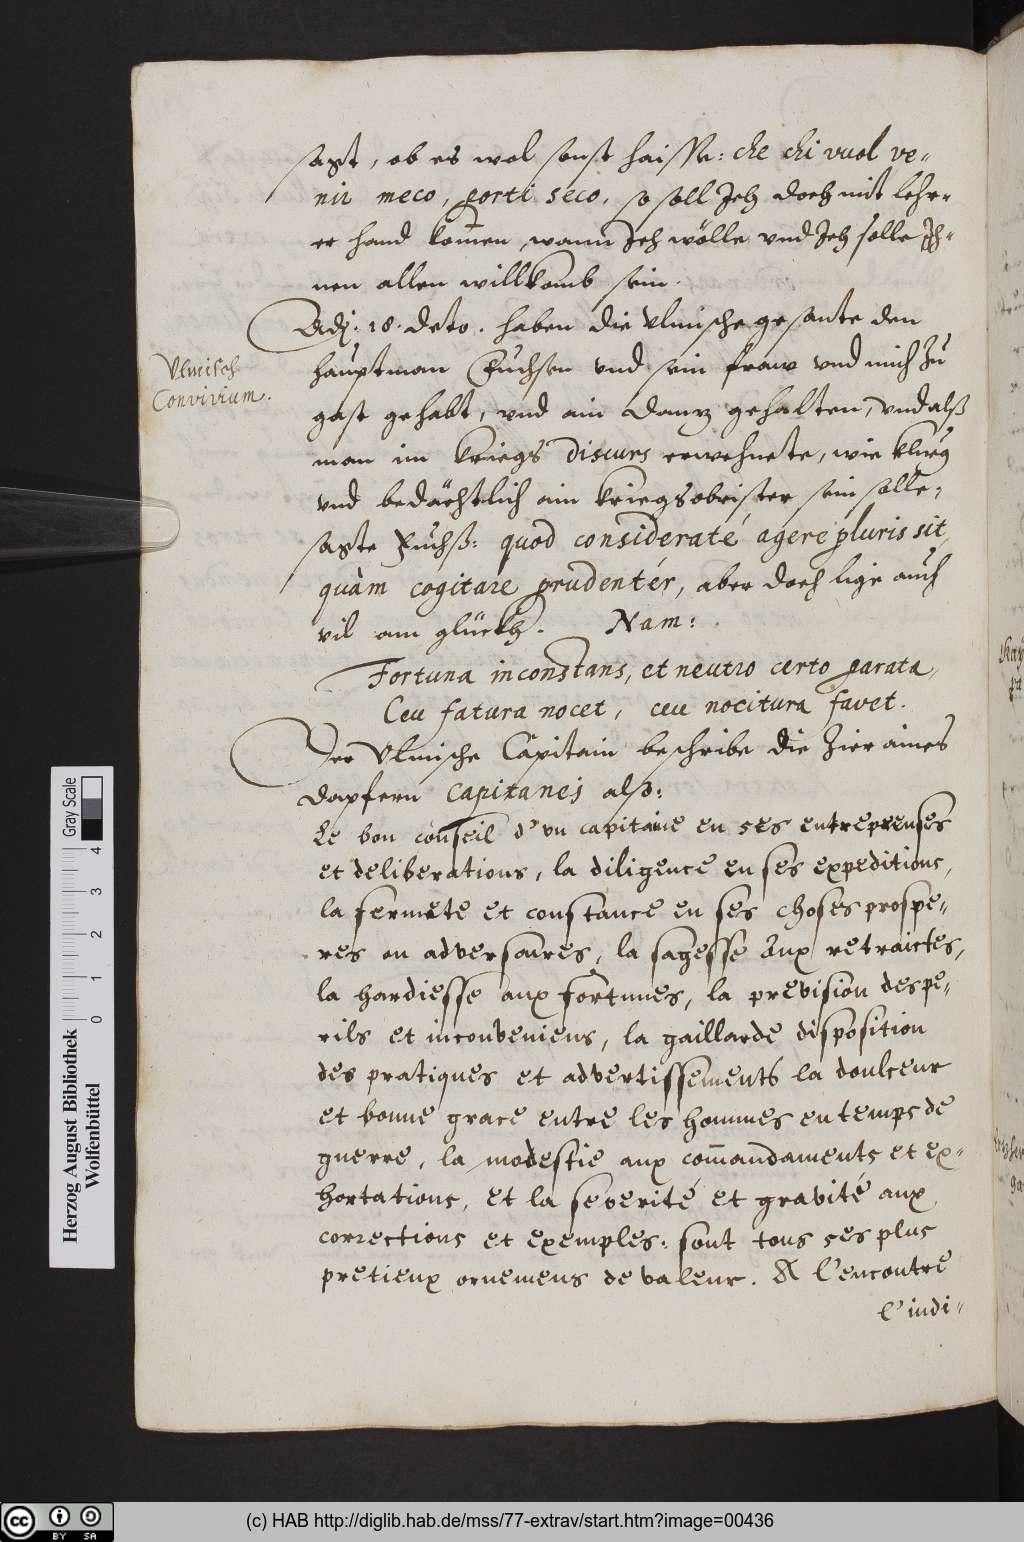 sagt, ob es wol sonst haisse: che chi vuol ve-
nir meco, porti seco, so soll Ich doch mit lehr-
er hand kom̄en, wann Ich wölle vnd Ich solle Ih-
nen allen willkomb sein.
Adj. 18. deto. haben die Vlmische gesante den
Vlmisch
Convivium.
hauptman Fuchsen vnd sein fraw vnd mich zu
gast gehabt, vnd ain dantz gehalten, vnd alß
man im kriegs discurs erwehnete, wie klueg
vnd bedächtlich ain kriegsobrister sein solle,
sagte Fuchß: quod consideraté agere pluris sit
quàm cogitare prudentér, aber doch lige auch
vil am glückh. Nam:
Fortuna inconstans, et neutro certo parata,
Ceu fatura nocet, ceu nocitura favet.
Der Vlmische Capitain beschribe die Zier aines
dapfern Capitanej alß:
Le bon conseil d'vn capitaine en ses entreprenses
et deliberations, la diligence en ses expeditions,
la fermete et constance en ses choses prospe-
res ou adversaires, la sagesse aux retraictes,
la hardiesse aux fortunes, la prevision des pe-
rils et inconveniens, la gaillarde disposition
des pratiques et advertissements la doulceur
et bonne grace entre les hommes en temps de
guerre, la modestie aux com̄andaments et ex-
hortations, et la severité et gravité aux
corrections et exemples: sont tous ses plus
pretieux ornemens de valeur. A l'encontre
l'indi-
Herzog August Bibliothek
Wolfenbüttel
0 1 2 3 4
Gray Scale
BY SA
(c) HAB http://diglib.hab.de/mss/77-extrav/start.htm?image=00436